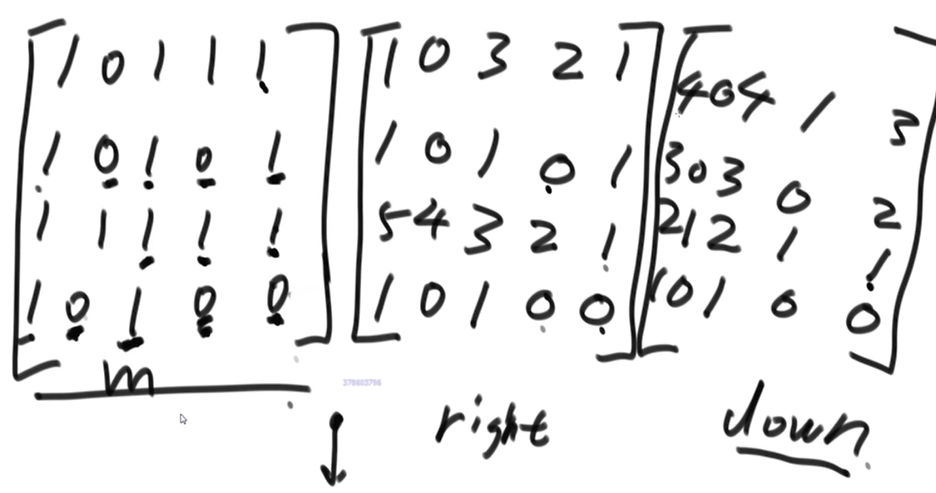 1 0 1 1 1
1 0 1 0 1
1 1 1 1 1
1 0 1 0 0
m
1 0 3 2 1
1 0 1 0 1
5 4 3 2 1
1 0 1 0 0
right
4 0 4 1 3
3 0 3 0 2
2 1 2 1 1
1 0 1 0 0
down
378603798